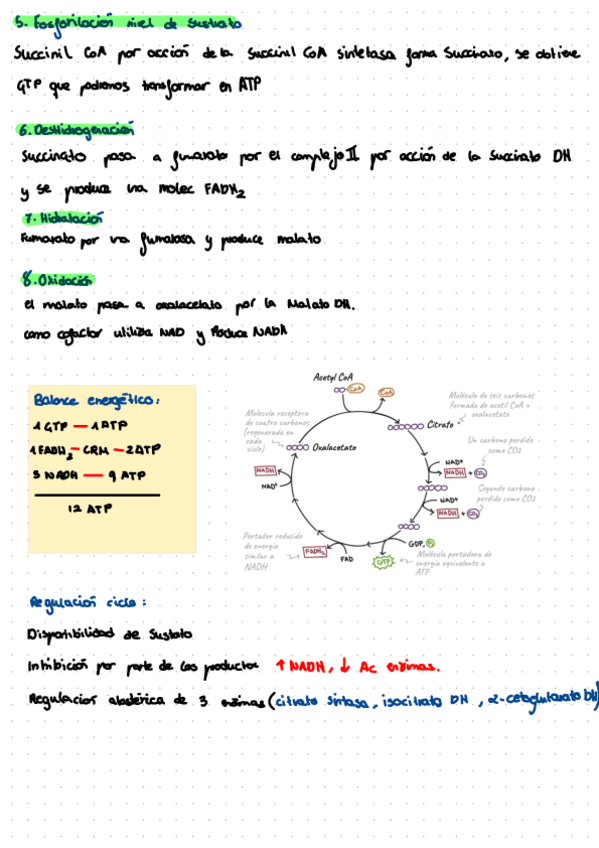 5. Fosforilación nivel de sustrato
Succinil CoA por acción de la Succinil CoA sintetasa forma Succinato, se obtiene
GTP que podemos transformar en ATP
6. Deshidrogenación
Succinato pasa a fumarato por el complejo II por acción de la Succinato DH
y se produce una molec FADH₂
7. Hidratación
Fumarato por una fumarasa y produce malato
8. Oxidación
el malato pasa a oxalacetato por la Malato DH.
como cofactor utiliza NAD y Produce NADH
Balance energético:
1 GTP — 1 ATP
1 FADH₂ — CRM — 2 ATP
3 NADH — 9 ATP
12 ATP
Acetyl CoA
CoA
CoA
Molécula de seis carbonos
formada de acetil CoA +
oxalacetato
Citrato
Molecula receptora
de cuatro carbonos
(regenerada en
cada
ciclo)
Oxalacetato
Un carbono perdido
como CO2
NAD+
NADH + CO₂
Segundo carbono
perdido como CO2
NAD+
NADH + CO₂
NADH
NAD+
Portador reducido
de energía
similar a
NADH
FADH₂
FAD
GDP, Pi
GTP
Molécula portadora de
energía equivalente a
ATP
Regulación ciclo:
Disponibilidad de Sustrato
Inhibición por parte de los productos ↑ NADH, ↓ Ac enzimas.
Regulación alostérica de 3 enzimas (citrato sintasa, isocitrato DH, α-cetoglutarato DH)